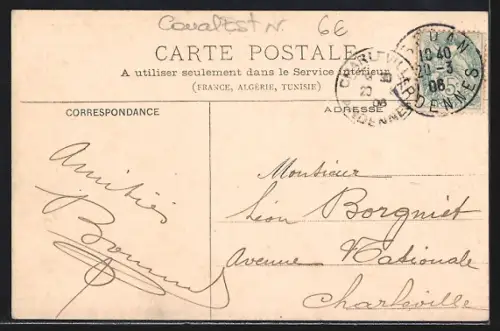 6E
CARTE POSTALE
A utiliser seulement dans le Service intérieur
(FRANCE, ALGÉRIE, TUNISIE)
CORRESPONDANCE
ADRESSE
CHARLEVILLE
ARDENNES
SEDAN
10 40
20 -3
06
ARDENNES
Amitiés
Monsieur
Léon Borgniet
Avenue Nationale
Charleville